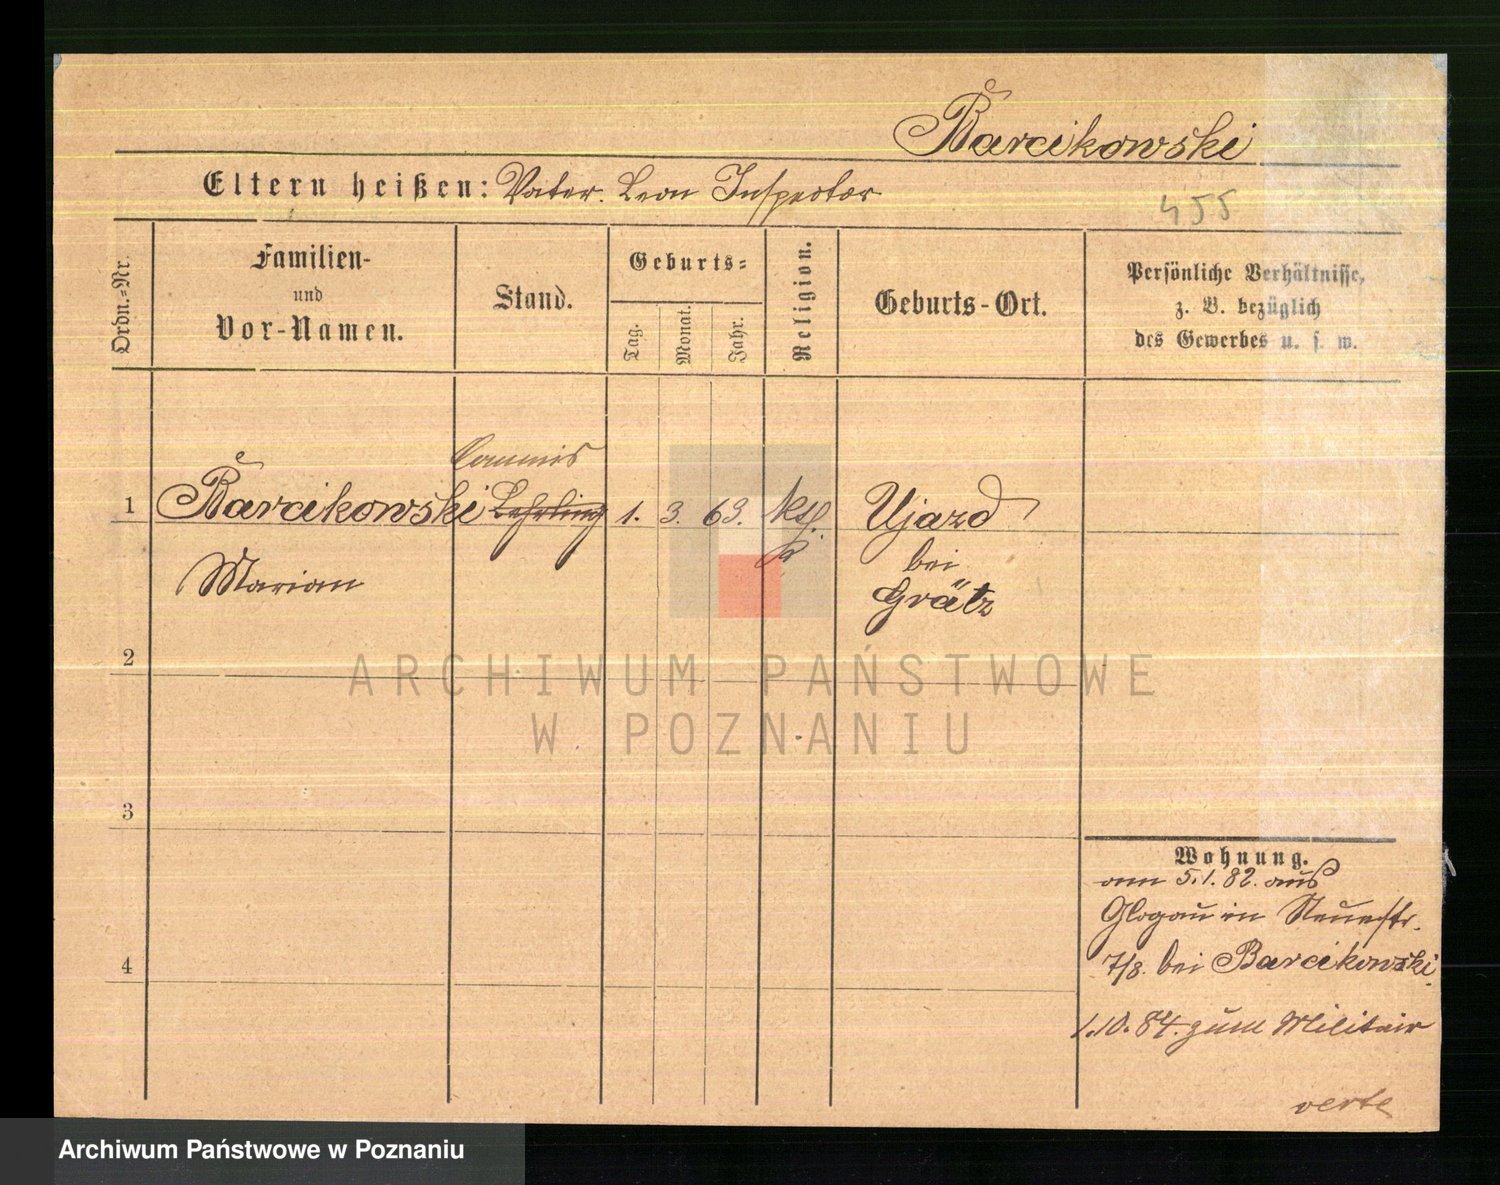 Barcikowski
Eltern heißen: Vater. Leon Inspector
455
Ordn.=Nr.
Familien-
und
Vor-Namen.
Stand.
Geburts=
Tag.
Monat.
Jahr.
Religion.
Geburts-Ort.
Persönliche Verhältnisse,
z. B. bezüglich
des Gewerbes u. s. w.
Commis
1 Barcikowski Lehrling 1. 3. 63. kth. Ujazd
bei
Marian Grätz
2
ARCHIWUM PAŃSTWOWE
W POZNANIU
3
Wohnung.
am 5.1.82. aus
Glogau in Neuestr.
7/8. bei Barcikowski.
4
1.10.84. zum Militair
verte
Archiwum Państwowe w Poznaniu